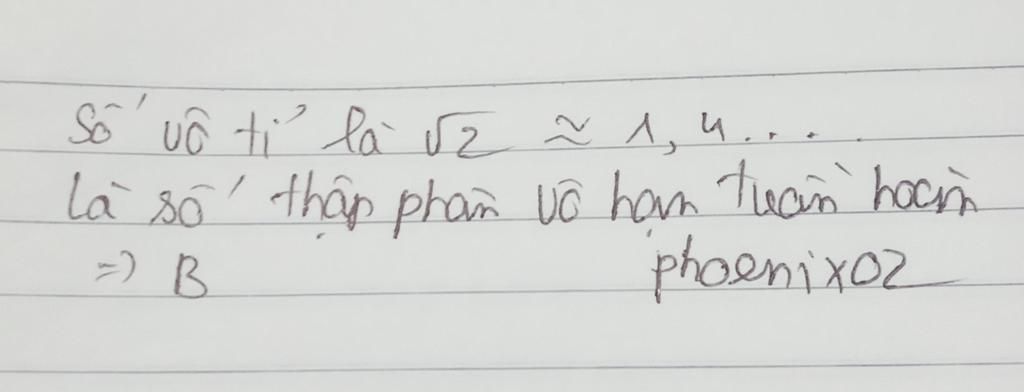 Số vô tỉ là √2 ≈ 1,4....
Là số thập phân vô hạn tuần hoàn
=> B phoenix02